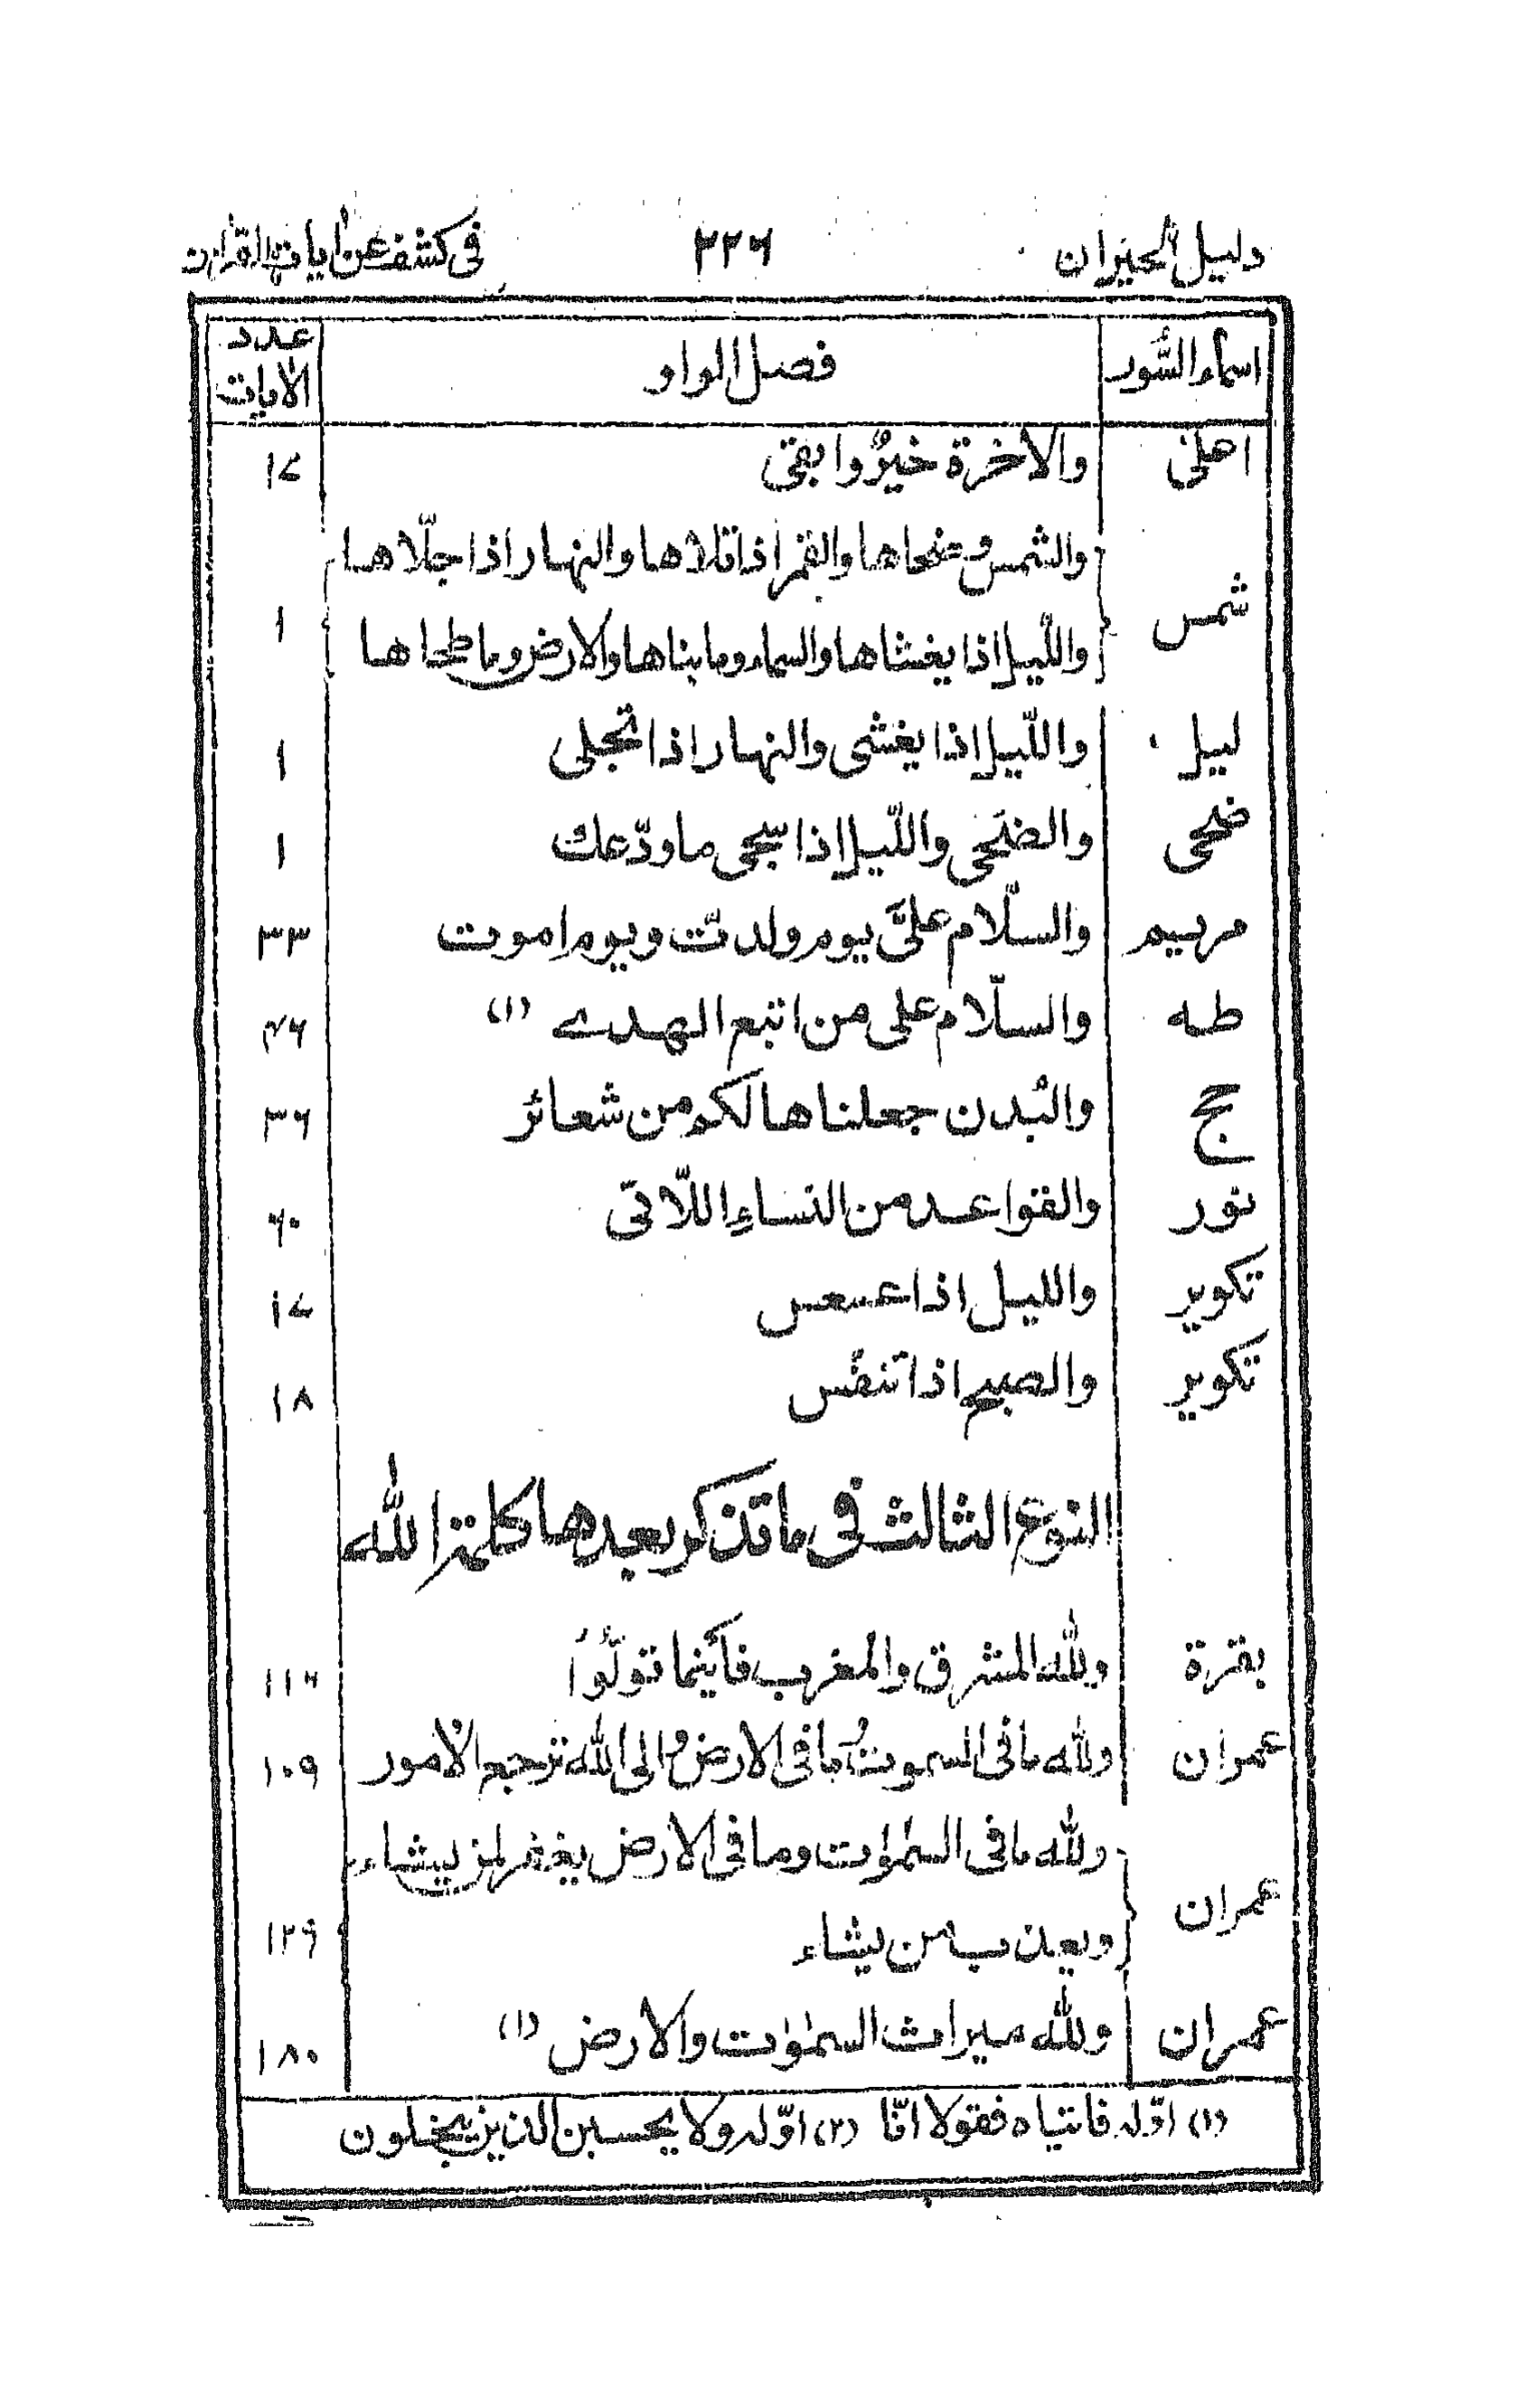 دليل الحيران ٢٢٦ فى كشف عن أيات القرآن
اسماء السُّور فصل الواو عدد الأيات
اعلىٰ والأخرة خيرٌ وابقى ١٧
والشمس وضحاها والقمر اذا تلاها والنهار اذا جلّاها
شمس والليل اذا يغشاها والسماء وما بناها والارض وما طحاها ١
ليل والليل اذا يغشى والنهار اذا تجلى ١
ضحى والضحى والليل اذا سجى ما ودّعك ١
مريم والسلام علىَّ يوم ولدتّ ويوم اموت ٣٣
طه والسلام على من اتبع الهدے (١) ٤٦
حج والبُدن جعلناها لكم من شعائر ٣٦
نور والقواعد من النساءِ اللّاتى ٦٠
تكوير والليل اذا عسعس ١٧
تكوير والصبح اذا تنفّس ١٨
النوع الثالث فى ما تذكر بعدها كلمة الله
بقرة ولله المشرق والمغرب فأينما تولّوا ١١٤
عمران ولله ما فى السموت وما فى الارض والى الله ترجع الامور ١٠٩
ولله ما فى السمٰوٰت وما فى الارض يغفر لمن يشاء
عمران ويعذب من يشاء ١٢٩
عمران ولله ميراث السمٰوٰت والارض (١) ١٨٠
(١) اوّله فاتياه فقولا انّا (٢) اوّله ولا يحسبن الذين يبخلون